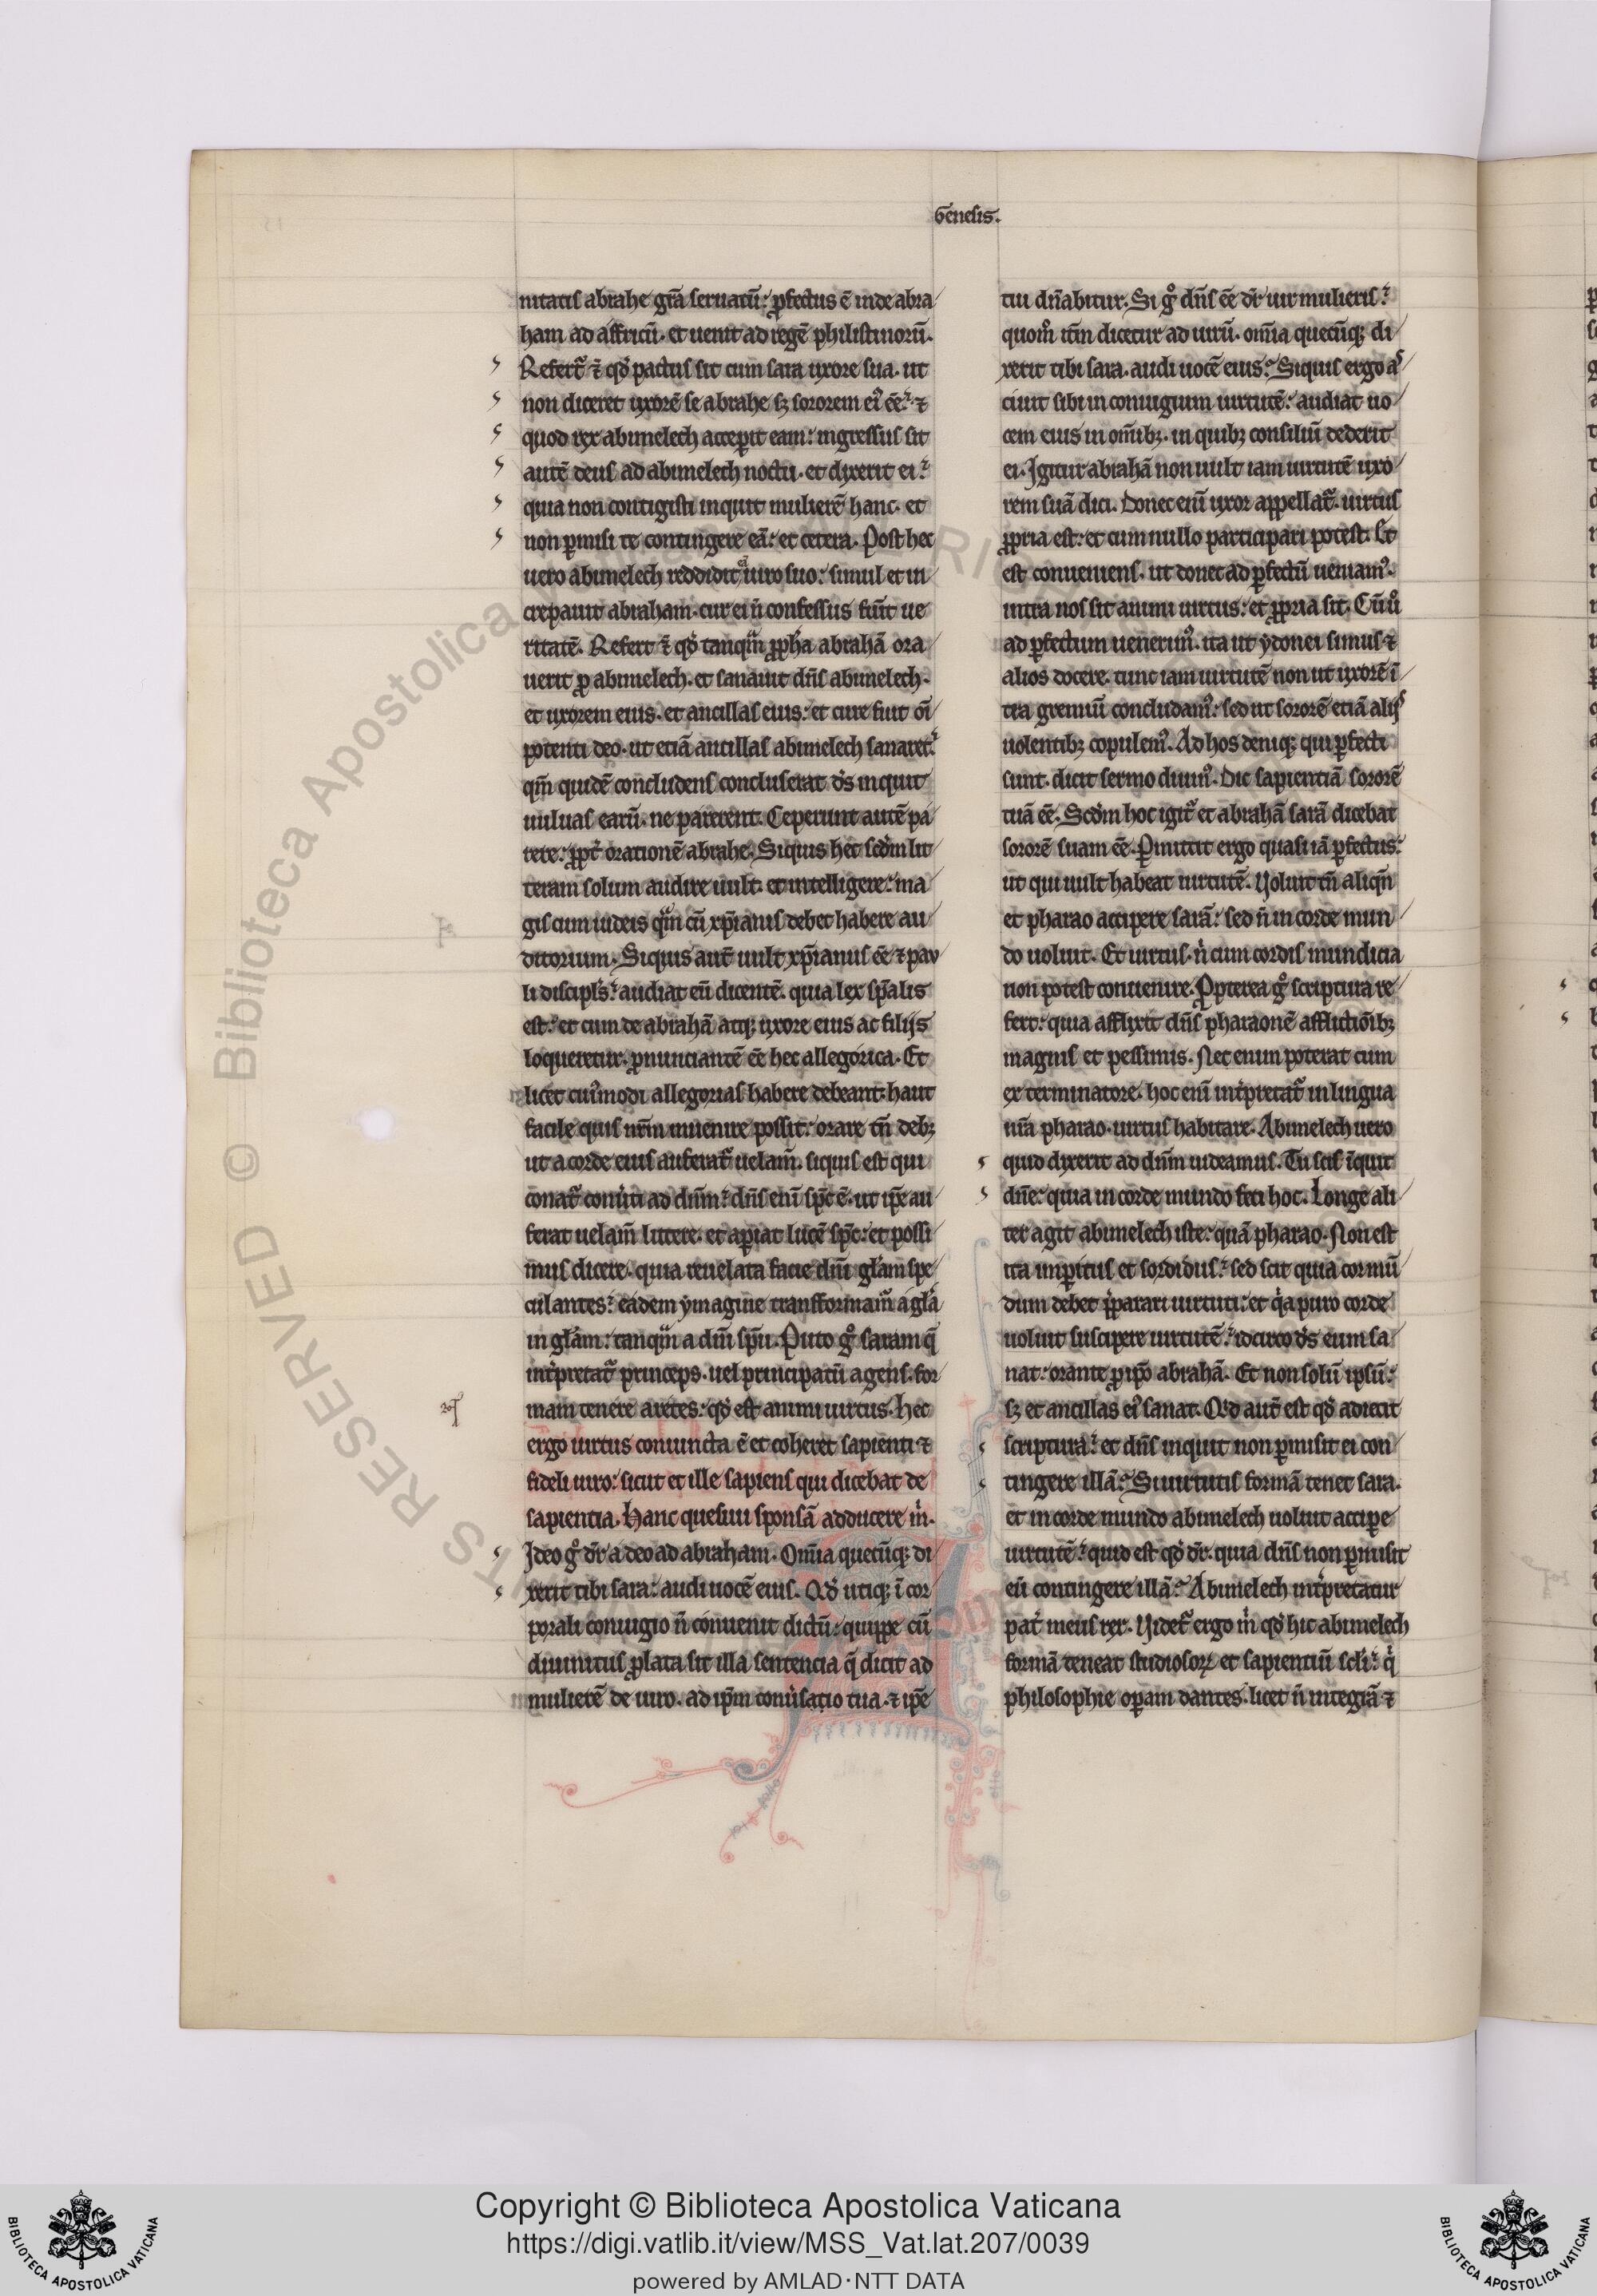 Genesis.
nitatis abrahe gr̄a seruatū: ꝓfectus ē inde abra
ham ad affricū. et uenit ad regē philistinorū.
Refert᷑ ⁊̄ qd̓ pactus sit cum sara uxore sua. ut
non diceret uxorē se abrahe sꝫ sororem ei᷒ ēē: ⁊
quod rex abimelech acceperit eam: ingressus sit
autē deus ad abimelech noctu. et dixerit ei:
quia non contigisti inquit mulierē hanc. et
non ꝑmisi te contingere eā: et cetera. Post hec
uero abimelech reddidit uiro suo: simul et in
crepauit abraham. cur ei n̄ confessus fuīt ue
ritatē. Refert ⁊̄ qd̓ tanqm̄ ꝓph̄a abrahā ora
uerit ꝓ abimelech. et sanauit dn̄s abimelech.
et uxorem eius. et ancillas eius: et cure fuit oī
potenti deo. ut etiā ancillas abimelech sanaret:
qm̄ quidē concludens concluserat ds̄ inquit
uuluas earū. ne parerent. Ceperunt autē pa
rere: ꝓpt̄ orationē abrahe. Siquis hec scd̄m lit
teram solum audire uult. et intelligere: ma
gis cum iudeis qm̄ cū xp̄ianis debet habere au
ditorium. Siquis aut̄ uult xp̄ianus ēē ⁊ pau
li discipl̄s: audiat eū dicentē. quia lex sp̄alis
est: et cum de abrahā atqꝫ uxore eius ac filijs
loqueretur. ꝓnunciantē ēē hec allegorica. Et
licet cui᷒modi allegorias habere debeant: haut
facile quis nr̄m inuenire possit: orare tn̄ debꝫ
ut a corde eius auferat᷑ uelam̄. siquis est qui
conat᷑ conuti ad dn̄m: dn̄s eni spc̄ ē. ut ip̄e au
ferat uelam̄ littere. et aꝑiat lucē spc̄: et possi
mus dicere. quia reuelata facie dn̄i gl̄am spe
culantes: eadem ymagine transformam᷒ a gl̄a
in gl̄am: tanqm̄ a dn̄i sp̄u. Puto g̊ saram q̄
int̓pretat᷑ princeps. uel principatū agens. for
mam tenere aretes: qd̓ est animi uirtus. Hec
ergo uirtus coniuncta ē et coheret sapienti ⁊
fideli uiro: sicut et ille sapiens qui dicebat de
sapientia. Hanc quesiui sponsā adducere m̓.
Ideo g̊ dr̄ a deo ad abraham. Om̄ia quecūqꝫ di
xerit tibi sara: audi uocē eius. Qd̓ utiqꝫ ī cor
porali coniugio n̄ conuenit dictū: quippe cū
diuinitus ꝓlata sit illa sentencia q̄ dicit ad
mulierē de uiro. ad ip̄m conūsatio tua. ⁊ ip̄e
tui dn̄abitur. Si g̊ dn̄s ēē dr̄ uir mulieris:
quom̊ itm̄ dicetur ad uirū. om̄ia quecūqꝫ di
xerit tibi sara. audi uocē eius: Siquis ergo as
ciuit sibi in coniugium uirtutē: audiat uo
cem eius in om̄ibꝫ. in quibꝫ consiliū dederit
ei. Igitur abrahā non uult iam uirtutē uxo
rem suā dici. Donec eni uxor appellat᷑. uirtus
ꝓpria est: et cum nullo participari potest. Et
est conueniens. ut donec ad ꝑfectū ueniam᷒.
intra nos sit animi uirtus: et ꝓpria sit. Cū ů
ad ꝑfectum uenerim᷒. ita ut ydonei simus ⁊
alios docere. tunc iam uirtutē non ut uxorē ī
tra gremiū concludam᷒: sed ut sororē etiā alijs
uolentibꝫ copulem᷒. Ad hos deniqꝫ qui ꝑfecti
sunt. dicit sermo diuin᷒. Dic sapientiā sororē
tuā ēē. Scd̄m hoc igit᷑ et abrahā sarā dicebat
sororē suam ēē. Ꝑmittit ergo quasi iā ꝑfectus:
ut qui uult habeat uirtutē. Uoluit tn̄ aliqn̄
et pharao accipere sarā: sed n̄ in corde mun
do uoluit. Et uirtus. n̓ cum cordis mundicia
non potest conuenire. Ꝓpterea g̊ scriptura re
fert: quia afflixit dn̄s pharaonē afflictiōibꝫ
magnis et pessimis. Nec enim poterat cum
exterminatore. hoc eni int̓pretat᷑ in lingua
nr̄a pharao. uirtus habitare. Abimelech uero
quid dixerit ad dn̄m uideamus. Tu scis īquit
dn̄e: quia in corde mundo feci hoc. Longe ali
ter agit abimelech iste: quā pharao. Non est
ita imꝑitus et sordidus: sed scit quia cor mū
dum debet p̄parari uirtuti: et q̓a puro corde
uoluit suscipere uirtutē: idcirco ds̄ eum sa
nat: orante ꝓ ip̄o abrahā. Et non solū ipsū:
sꝫ et ancillas ei᷒ sanat. Qd̓ aut̄ est qd̓ adiecit
scriptura: et dn̄s inquit non ꝑmisit ei con
tingere illā: Si uirtutis formā tenet sara.
et in corde mundo abimelech uoluit accipe
uirtutē: quid est qd̓ dr̄. quia dn̄s non ꝑmisit
eū contingere illā: Abimelech int̓pretatur
pat̓ meus rex. Uidet᷑ ergo m̓ qd̓ hic abimelech
formā teneat studiosoꝝ et sapientiū scl̄i: q̓
philosophie oꝑam dantes. licet n̄ integrā ⁊
© Biblioteca Apostolica Vaticana
RESERVED
Copyright © Biblioteca Apostolica Vaticana
https://digi.vatlib.it/view/MSS_Vat.lat.207/0039
powered by AMLAD·NTT DATA
BIBLIOTECA APOSTOLICA VATICANA
BIBLIOTECA APOSTOLICA VATICANA